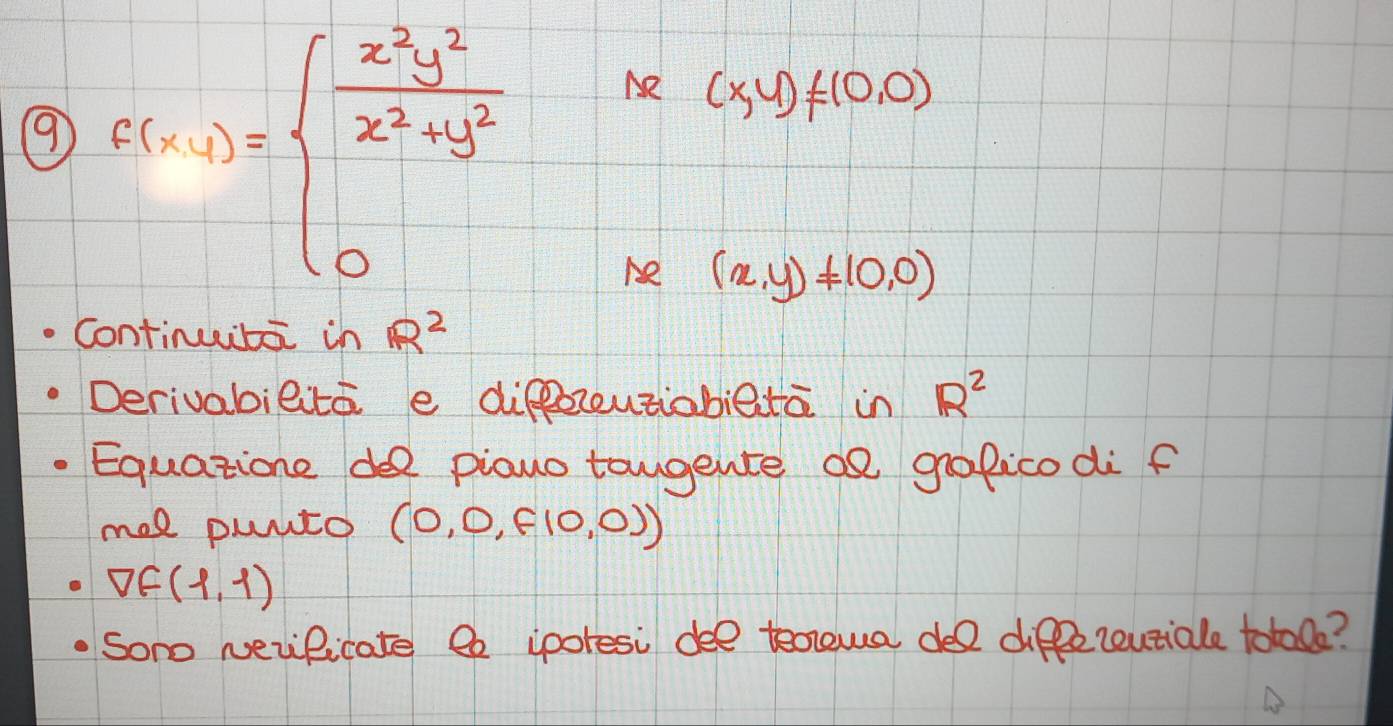 ⑨ f(x,y) = { x²y² / x²+y² se (x,y)≠(0,0)
0 se (x,y)≠(0,0)
• Continuità in ℝ²
• Derivabilità e differenziabilità in ℝ²
• Equazione del piano tangente al grafico di f
nel punto (0,0,f(0,0))
• ∇f(1,1)
• Sono verificate le ipotesi del teorema del differenziale totale?